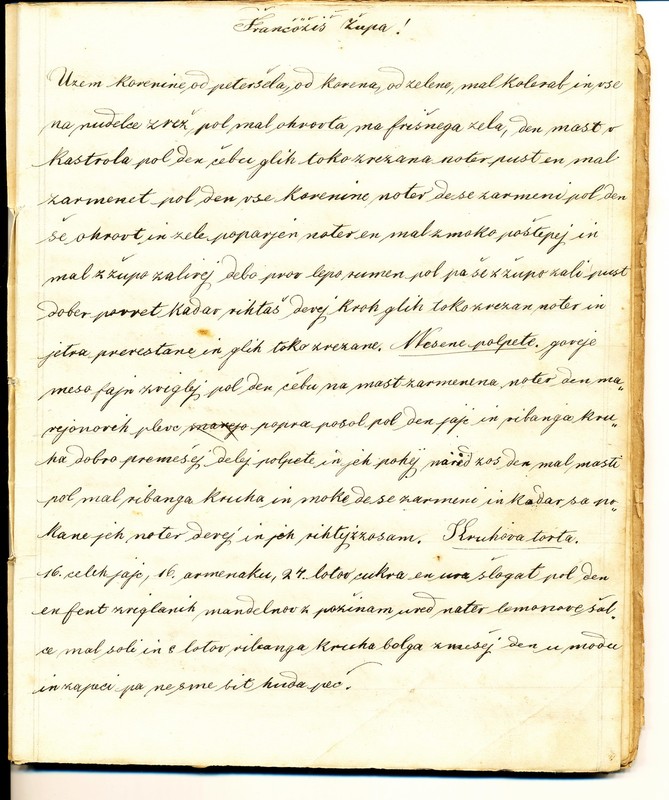 Francožiš župa!
Uzem korenine, od peteršela, od korena, od zelene, mal kolerab in vse
na nudelce zrež, pol mal ohrovta, ma frišnega zela, den mast v
kastrola pol den čebu glih toko zrezana noter pust en mal
zarmenet pol den vse korenine noter de se zarmeni pol den
še ohrovt in zele poparjen noter en mal z moko poštepej in
mal z župo zalivej de bo prov lepo rumen pol pa še z župo zali pust
dober povret kadar rihtaš devej kroh glih toko zrezan noter in
jetra prerestane in glih toko zrezane. Mesene polpete. goveje
meso fajn zviglej pol den čebu na mast zarmenena noter den ma„
rejonovih plevc popra posol pol den jajc in ribanga kru„
ha dobro premešej delej polpete in jeh pohej nared zos den mal masti
pol mal ribanga kruha in moke de se zarmeni in kadar sa po„
kane jeh noter devej in jeh rihtej z zosam. Kruhova torta.
16. celeh jajc, 16. armenaku, 24. lotov cukra en ura šlogat pol den
en fent zviglanih mandelnov z požinam ured noter lemonove šal„
ce mal soli in 8 lotov ribanga kruha bolga zmešej den u modu
in zapeci pa ne sme bit huda peč.